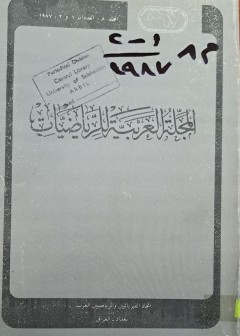 المجلد ٨، العددان ١ و ٢، ١٩٨٧
م ٨
١-٢
١٩٨٧
Periodical Division
Central Library
University of Salahaddin
ARBIL
المجلة العربية للرياضيات
اتحاد الفيزيائيين والرياضيين العرب
بغداد - العراق